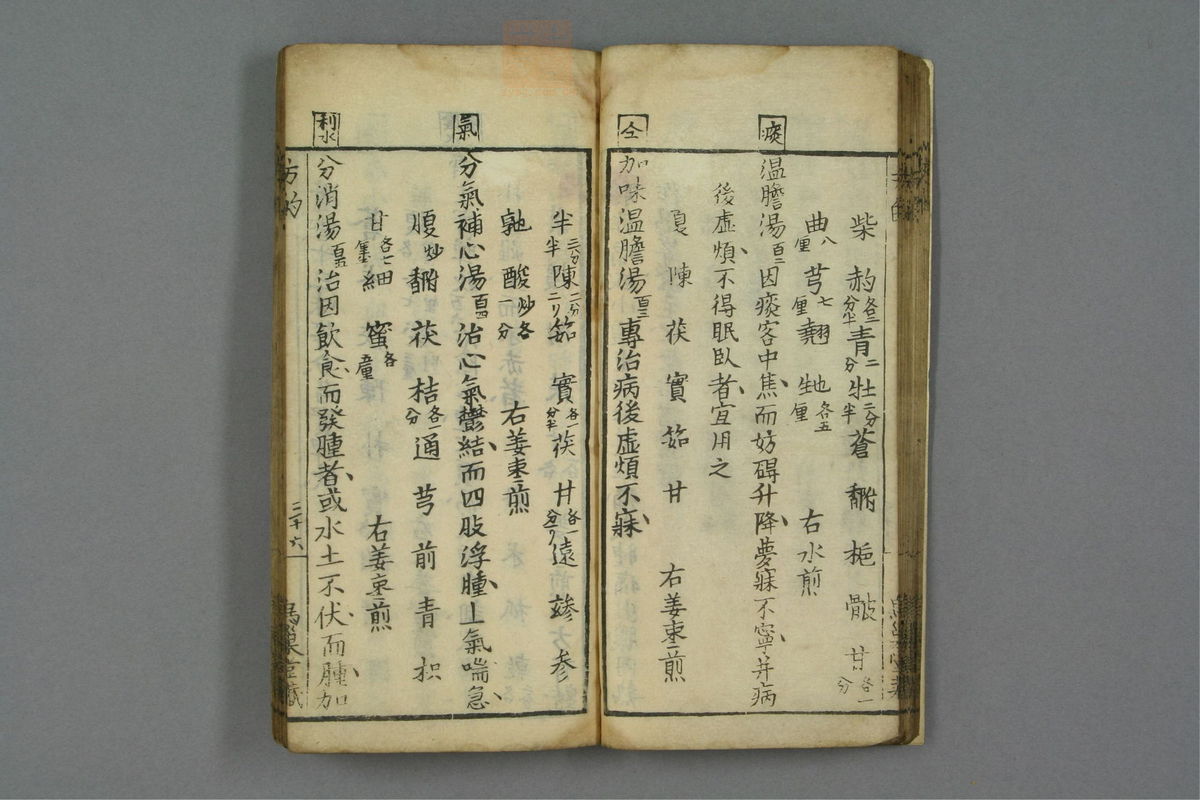 柴 芍 各二分半 青 二分 牡 二分半 蒼 梔 甘 各一分
曲 八厘 芎 七厘 各五厘 右水煎
痰
温膽湯 百二 因痰客中焦而妨碍升降夢寐不寧并病
後虚煩不得眠臥者宜用之
夏 陳 茯 實 茹 甘 右姜棗煎
仝
加味温膽湯 百三 專治病後虚煩不寐
半 三分半 陳 二分二リ 茹 實 各一分半 茯 甘 各一分一リ 遠 參
酸 炒各一分 右姜棗煎
氣
分氣補心湯 百四 治心氣鬱結而四肢浮腫上氣喘急
腹 炒 茯 桔 各一分 通 芎 前 青 枳
甘 各七厘 細 蜜 各 右姜棗煎
利水
分消湯 百五 治因飲食而發腫者或水土不伏而腫加
方的
三十六